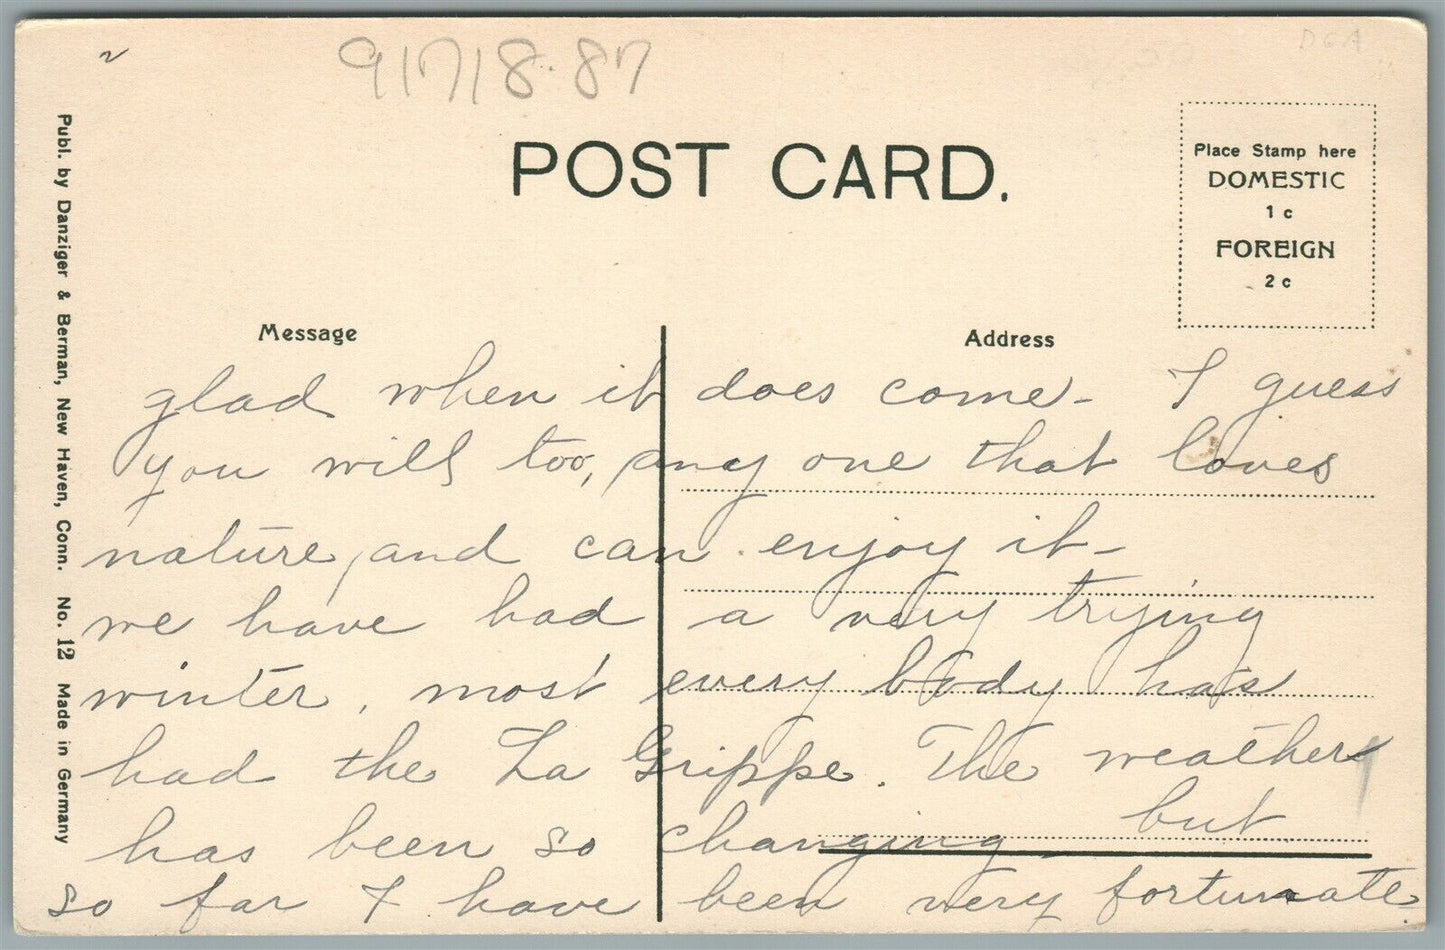 2
91718.87
DGA
POST CARD.
Place Stamp here
DOMESTIC
1 c
FOREIGN
2 c
Publ. by Danziger & Berman, New Haven, Conn. No. 12 Made in Germany
Message
Address
glad when it does come - I guess
you will too, any one that loves
nature, and can enjoy it -
we have had a very trying
winter, most every body has
had the La Grippe. The weather
has been so changing - but
so far I have been very fortunate